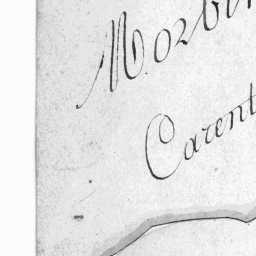 Morbi
Carent